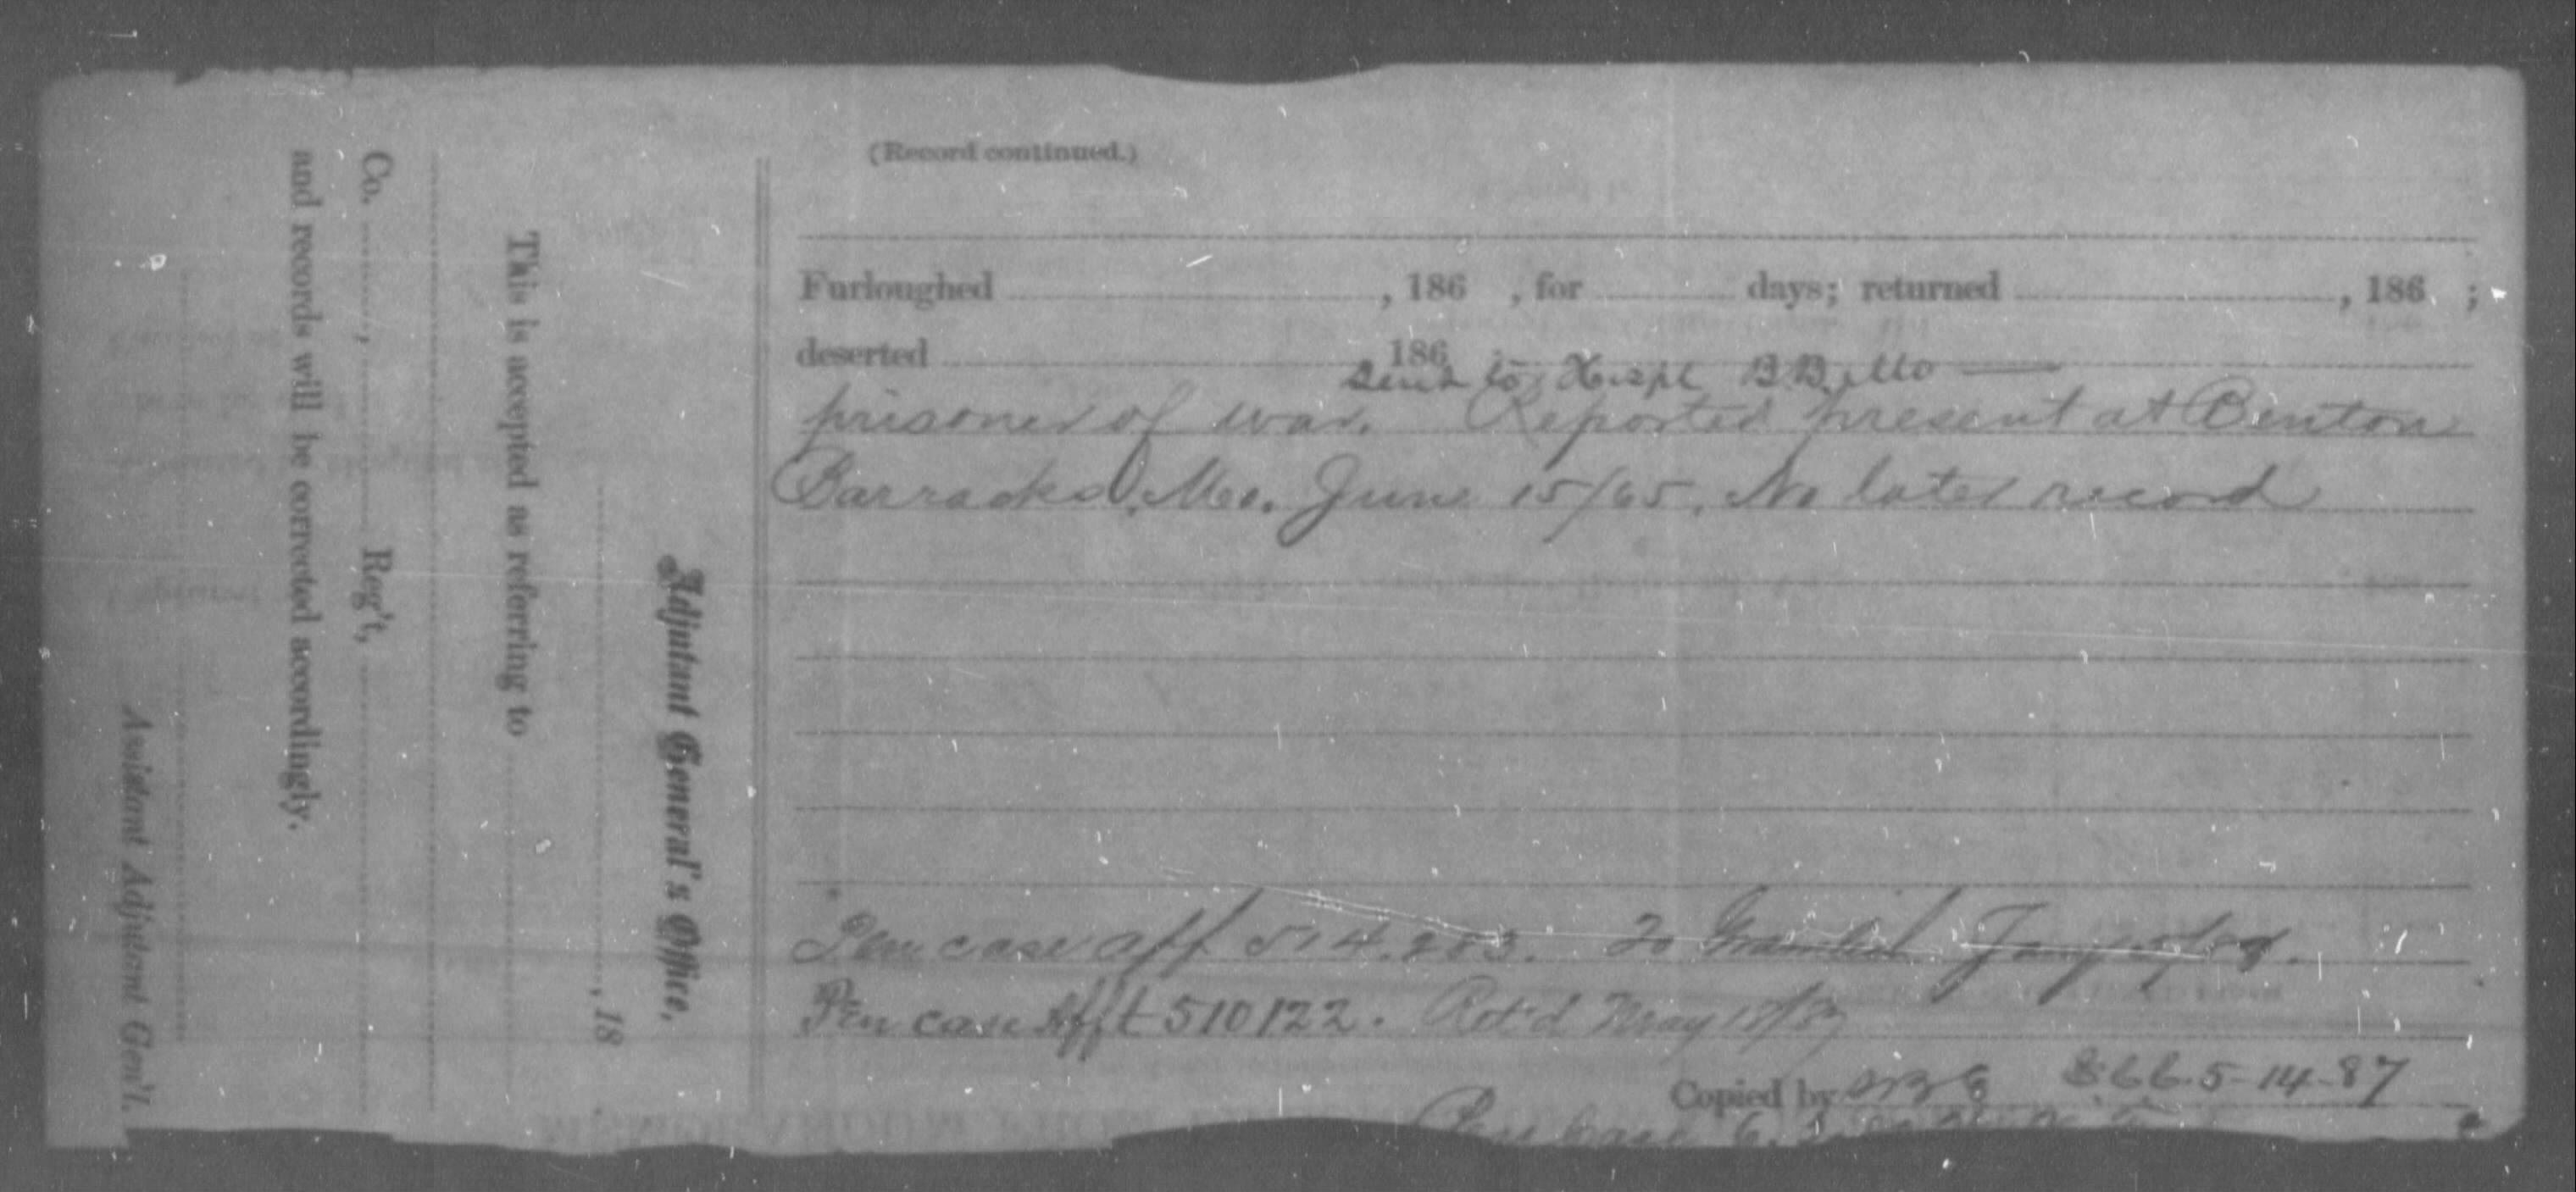 (Record continued.)
Furloughed , 186 , for days; returned , 186 ;
deserted 186
Sent to Hospl BB Mo
prisoner of war. Reported present at Benton
Barracks, Mo. June 15/65. No later record
Pen case aff 514.283. To
Pen case Afft 510122. Ret'd May 18/87
Copied by 5-14-87
Adjutant General's Office,
, 18
This is accepted as referring to
Co. , Reg't,
and records will be corrected accordingly.
Assistant Adjutant Gen'l.